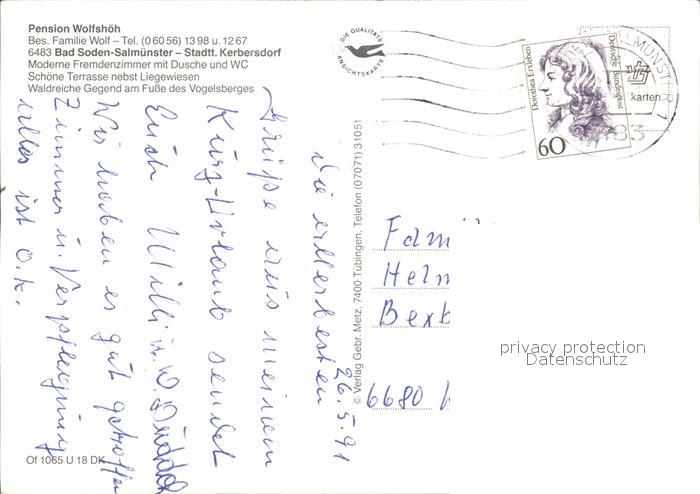 Pension Wolfshöh
Bes. Familie Wolf – Tel. (0 60 56) 13 98 u. 12 67
6483 Bad Soden-Salmünster – Stadtt. Kerbersdorf
Moderne Fremdenzimmer mit Dusche und WC
Schöne Terrasse nebst Liegewiesen
Waldreiche Gegend am Fuße des Vogelsberges
26.5.91
Die allerbesten
Grüße aus meinem
Kurz-Urlaub sendet
Euch Willi u. W.
Wir haben es gut getroffen
Zimmer u. Verpflegung
alles ist o.k.
Of 1065 U 18 DK
© Verlag Gebr. Metz, 7400 Tübingen, Telefon (07071) 31051
DIE QUALITÄTS
ANSICHTSKARTE
Dorothea Erxleben
Deutsche Bundespost
60
SALMÜNSTER 1
karten
83
Fam
Helm
Bexb
6680
privacy protection
Datenschutz